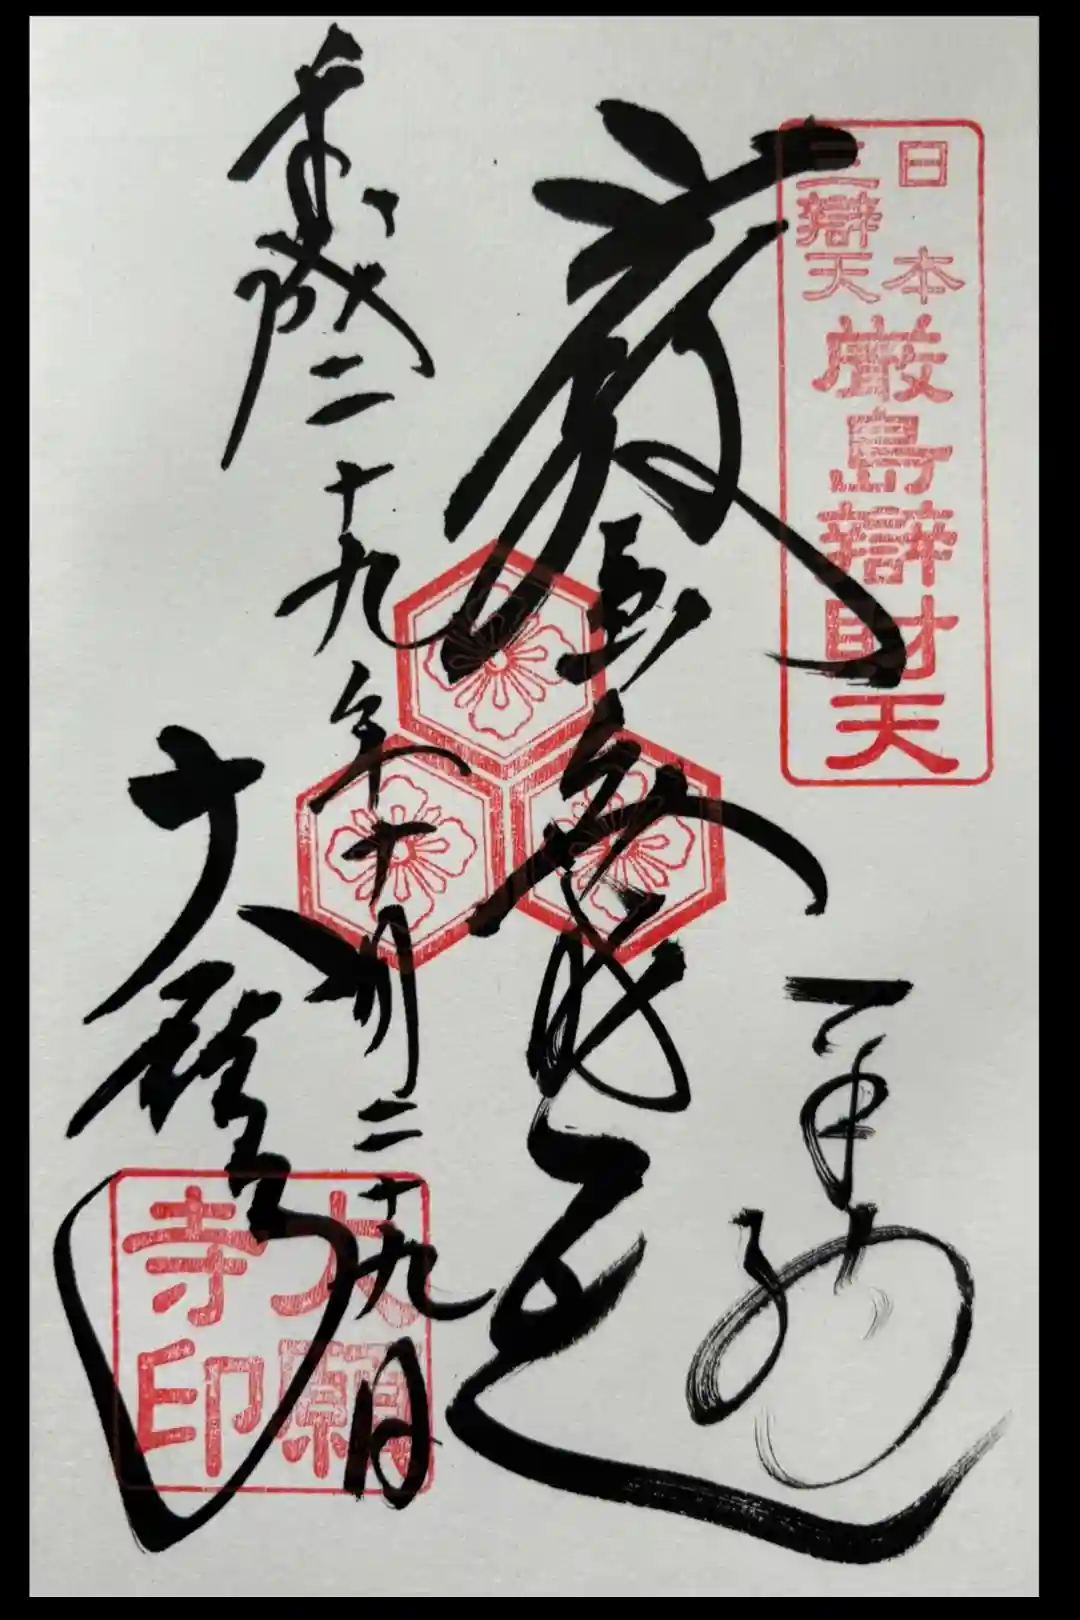 日本
三辯天
厳島辯財天
奉拝
厳島辨財天
平成二十九年十月二十九日
大願寺
大願
寺印